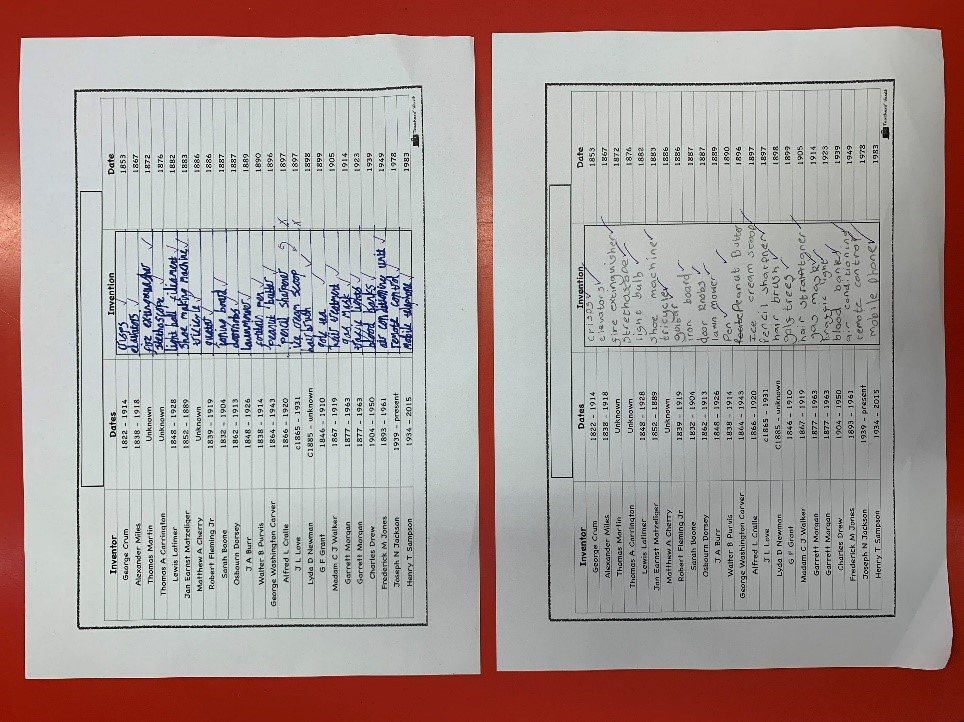 Inventor Dates Invention Date
George Crum 1822 - 1914 crisps 1853
Alexander Miles 1838 - 1918 elevators 1867
Thomas Martin Unknown fire extinguisher 1872
Thomas A Carrington Unknown 1876
Lewis Latimer 1848 - 1928 light bulb filiament 1882
Jan Earnst Matzeliger 1852 - 1889 Shoe making machine 1883
Matthew A Cherry Unknown tricicle 1886
Robert Fleming Jr 1839 - 1919 guitar 1886
Sarah Boone 1832 - 1904 Ironing board 1887
Osbourn Dorsey 1862 - 1913 1887
J A Burr 1848 - 1926 lawnmower 1889
Walter B Purvis 1838 - 1914 pen 1890
George Washington Carver 1864 - 1943 peanut butter 1896
Alfred L Cralle 1866 - 1920 pencil sharpener 1897
J L Love c1865 - 1931 ice cream scoop 1897
Lyda D Newman C1885 - unknown hairbrush 1898
G F Grant 1846 - 1910 golf tea 1899
Madam C J Walker 1867 - 1919 hair 1905
Garrett Morgan 1877 - 1963 gas mask 1914
Garrett Morgan 1877 - 1963 traffic lights 1923
Charles Drew 1904 - 1950 blood banks 1939
Frederick M Jones 1893 - 1961 air conditioning unit 1949
Joseph N Jackson 1939 - present remote control 1978
Henry T Sampson 1934 - 2015 mobile 1983
Inventor Dates Invention Date
George Crum 1822 - 1914 crisps 1853
Alexander Miles 1838 - 1918 elevators 1867
Thomas Martin Unknown fire extinguisher 1872
Thomas A Carrington Unknown 1876
Lewis Latimer 1848 - 1928 light bulb 1882
Jan Earnst Matzeliger 1852 - 1889 shoe machine 1883
Matthew A Cherry Unknown tricycle 1886
Robert Fleming Jr 1839 - 1919 guitar 1886
Sarah Boone 1832 - 1904 iron board 1887
Osbourn Dorsey 1862 - 1913 door knobs 1887
J A Burr 1848 - 1926 lawn mower 1889
Walter B Purvis 1838 - 1914 Pen 1890
George Washington Carver 1864 - 1943 Peanut Butter 1896
Alfred L Cralle 1866 - 1920 Ice cream scoop 1897
J L Love c1865 - 1931 Pencil sharpner 1897
Lyda D Newman C1885 - unknown hair brush 1898
G F Grant 1846 - 1910 1899
Madam C J Walker 1867 - 1919 hair 1905
Garrett Morgan 1877 - 1963 gas mask 1914
Garrett Morgan 1877 - 1963 light 1923
Charles Drew 1904 - 1950 blood banks 1939
Frederick M Jones 1893 - 1961 air conditioning 1949
Joseph N Jackson 1939 - present remote control 1978
Henry T Sampson 1934 - 2015 mobile phone 1983